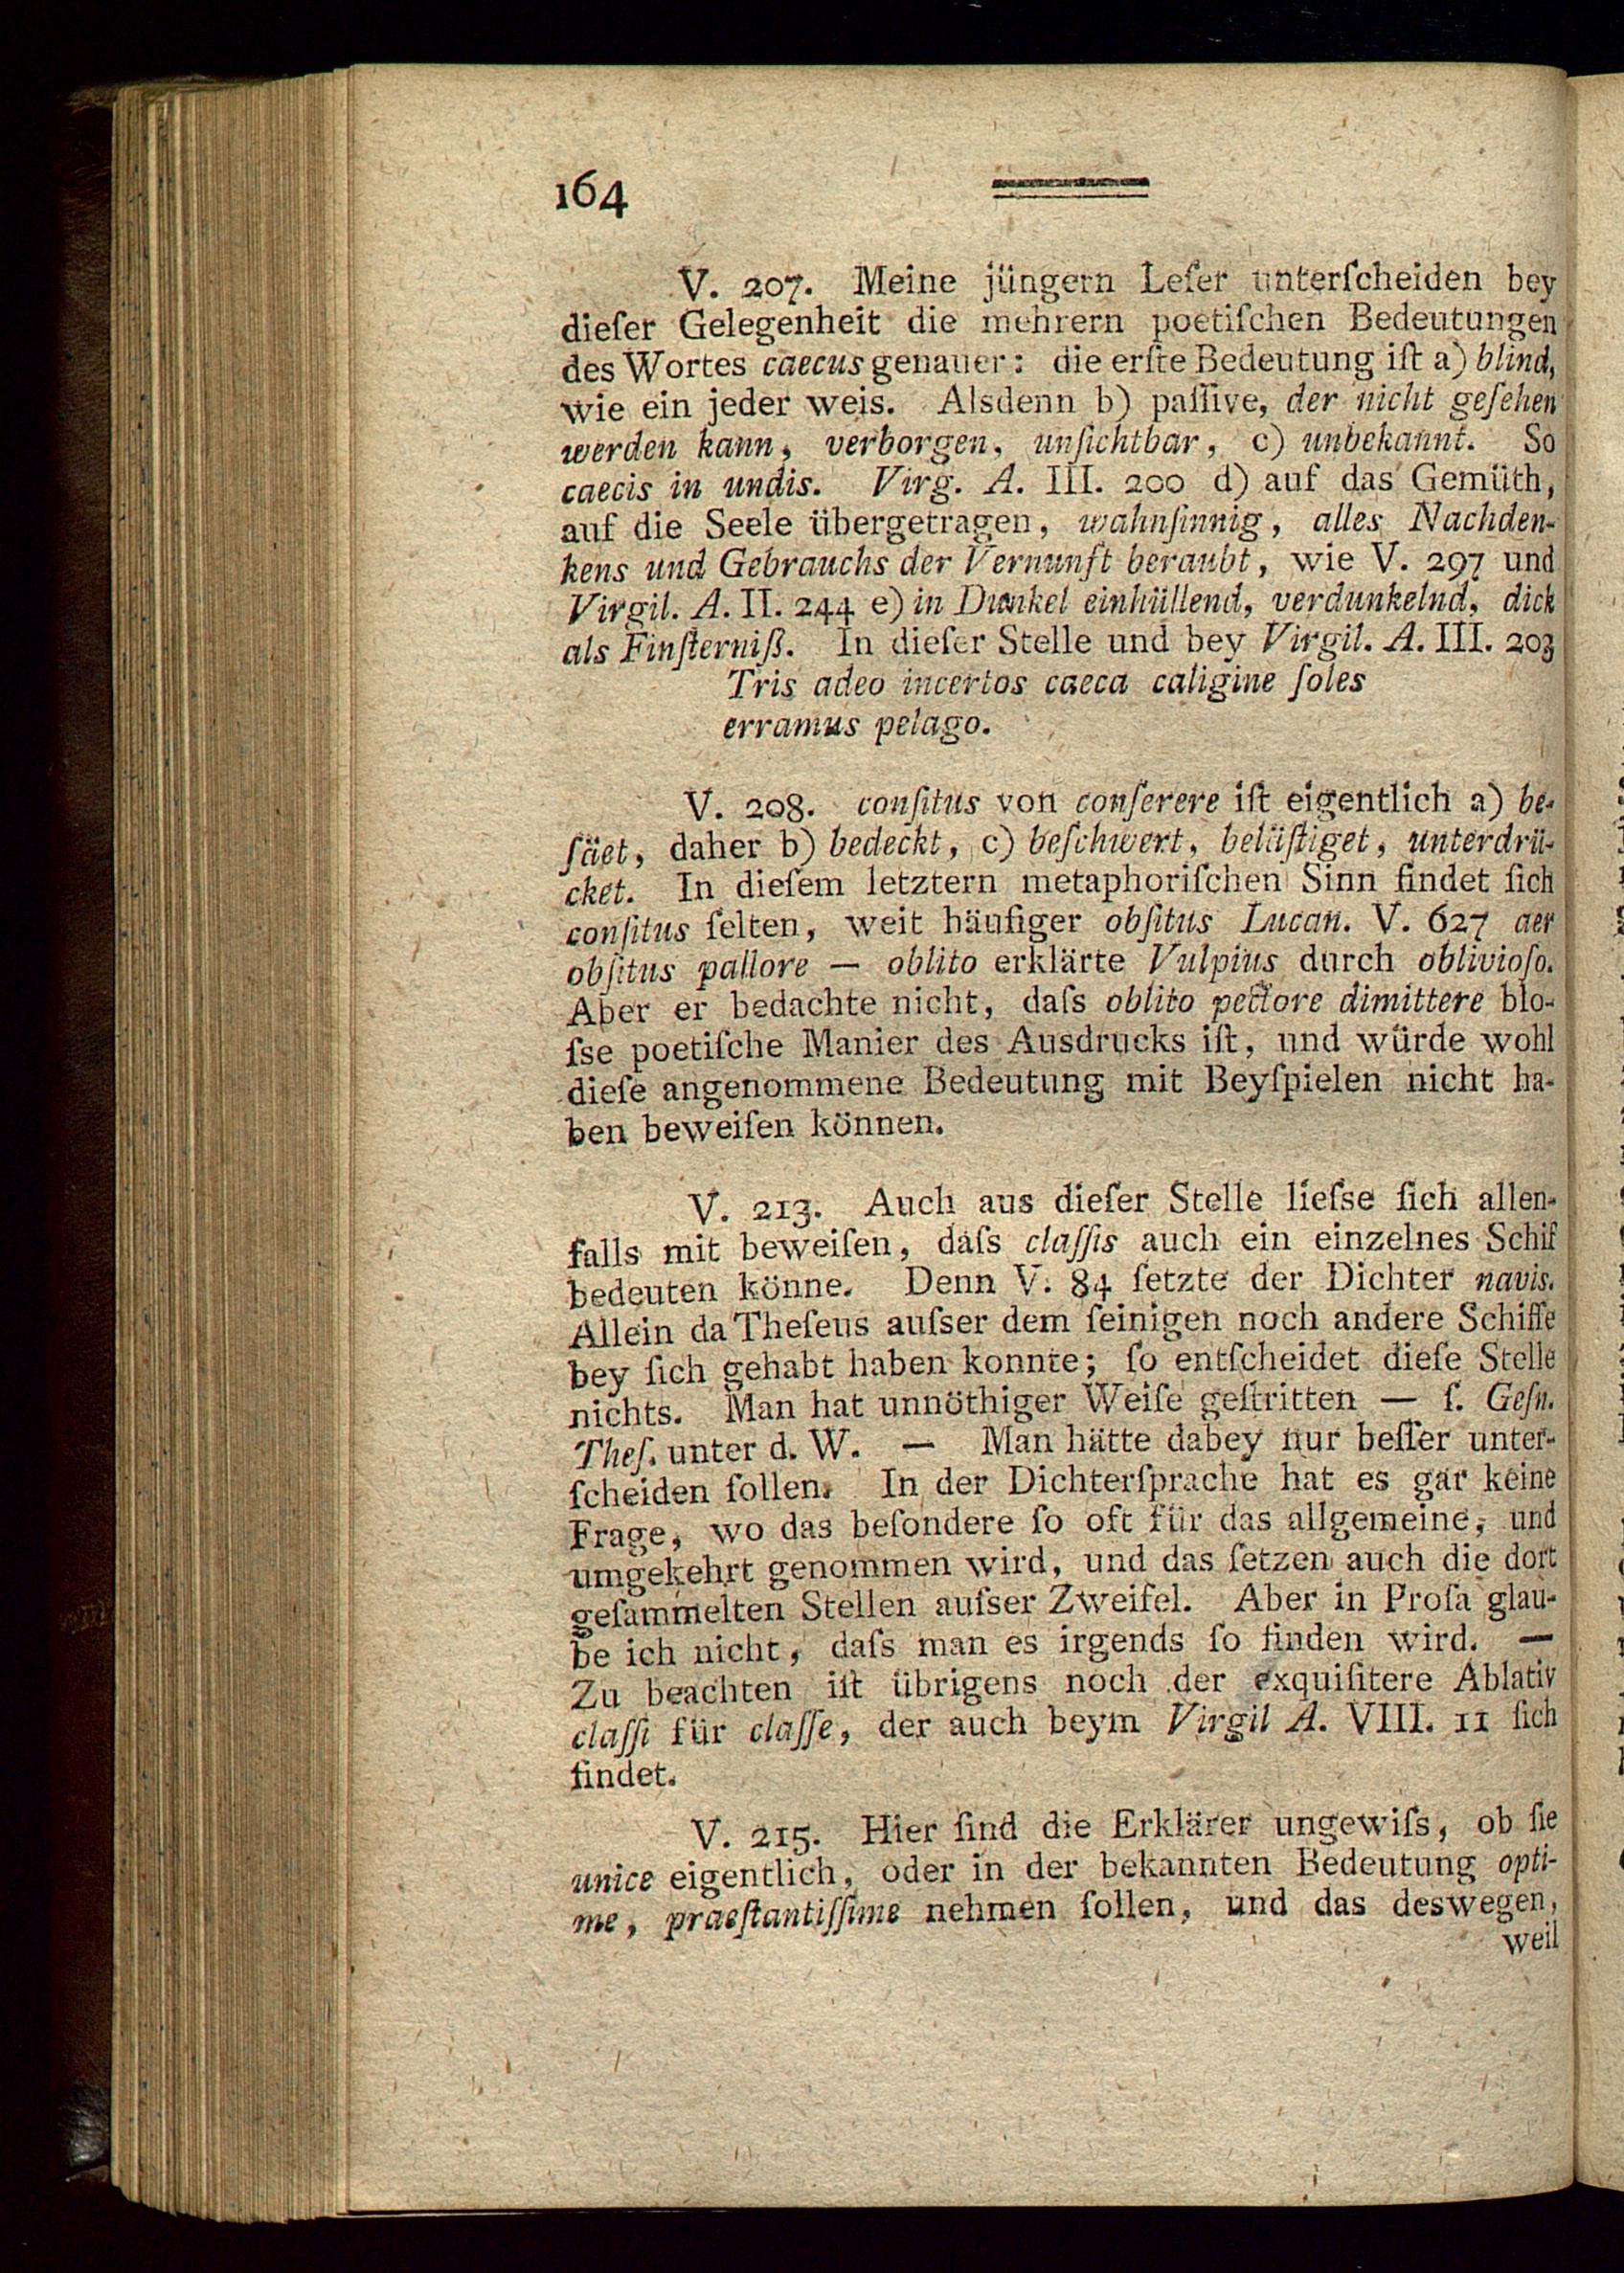 164
V. 207. Meine jüngern Leſer unterſcheiden bey
dieſer Gelegenheit die mehrern poetiſchen Bedeutungen
des Wortes caecus genauer: die erſte Bedeutung iſt a) blind,
wie ein jeder weis. Alsdenn b) paſſive, der nicht geſehen
werden kann, verborgen, unſichtbar, c) unbekannt. So
caecis in undis. Virg. A. III. 200 d) auf das Gemüth,
auf die Seele übergetragen, wahnſinnig, alles Nachden-
kens und Gebrauchs der Vernunft beraubt, wie V. 297 und
Virgil. A. II. 244 e) in Dunkel einhüllend, verdunkelnd, dick
als Finſterniß. In dieſer Stelle und bey Virgil. A. III. 203
Tris adeo incertos caeca caligine ſoles
erramus pelago.
V. 208. conſitus von conſerere iſt eigentlich a) be-
ſäet, daher b) bedeckt, c) beſchwert, beläſtiget, unterdrü-
cket. In dieſem letztern metaphoriſchen Sinn findet ſich
conſitus ſelten, weit häufiger obſitus Lucan. V. 627 aer
obſitus pallore — oblito erklärte Vulpius durch oblivioſo.
Aber er bedachte nicht, daſs oblito pectore dimittere blo-
ſse poetiſche Manier des Ausdrucks iſt, und würde wohl
dieſe angenommene Bedeutung mit Beyſpielen nicht ha-
ben beweiſen können.
V. 213. Auch aus dieſer Stelle lieſse ſich allen-
falls mit beweiſen, daſs claſſis auch ein einzelnes Schif
bedeuten könne. Denn V. 84 ſetzte der Dichter navis.
Allein da Theſeus auſser dem ſeinigen noch andere Schiffe
bey ſich gehabt haben konnte; ſo entſcheidet dieſe Stelle
nichts. Man hat unnöthiger Weiſe geſtritten — ſ. Geſn.
Theſ. unter d. W. — Man hätte dabey nur beſſer unter-
ſcheiden ſollen. In der Dichterſprache hat es gar keine
Frage, wo das beſondere ſo oft für das allgemeine, und
umgekehrt genommen wird, und das ſetzen auch die dort
geſammelten Stellen auſser Zweifel. Aber in Proſa glau-
be ich nicht, daſs man es irgends ſo finden wird. —
Zu beachten iſt übrigens noch der exquiſitere Ablativ
claſſi für claſſe, der auch beym Virgil A. VIII. 11 ſich
findet.
V. 215. Hier ſind die Erklärer ungewiſs, ob ſie
unice eigentlich, oder in der bekannten Bedeutung opti-
me, praeſtantiſſime nehmen ſollen, und das deswegen,
weil